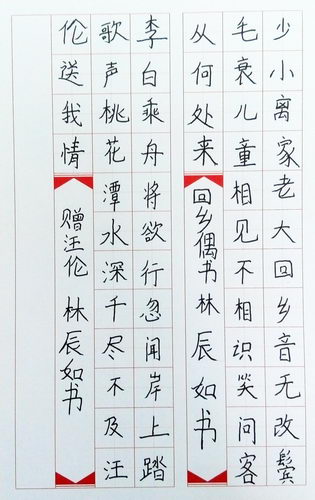 少小离家老大回乡音无改鬓
毛衰儿童相见不相识笑问客
从何处来 回乡偶书 林辰如书
李白乘舟将欲行忽闻岸上踏
歌声桃花潭水深千尽不及汪
伦送我情 赠汪伦 林辰如书